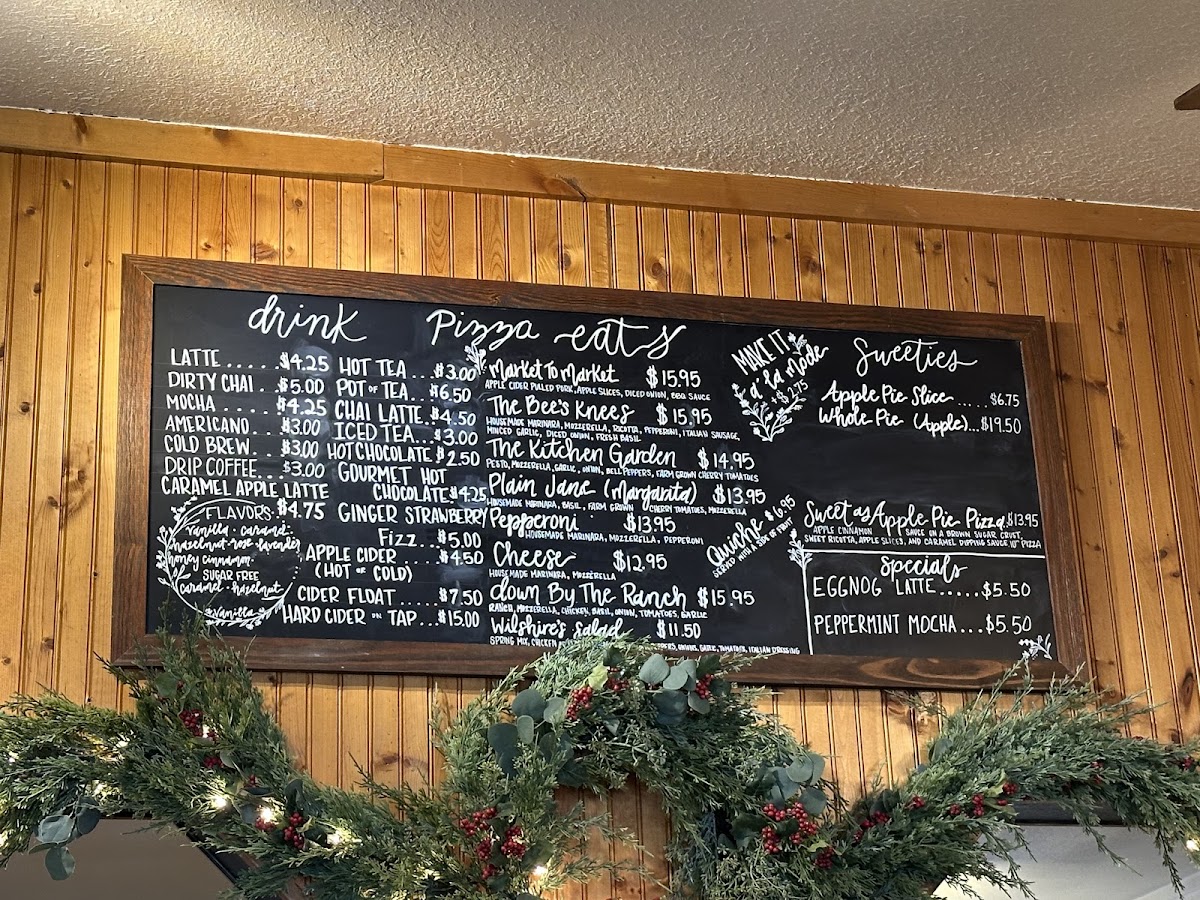 drink
LATTE.....$4.25
DIRTY CHAI..$5.00
MOCHA.....$4.25
AMERICANO..$3.00
COLD BREW..$3.00
DRIP COFFEE...$3.00
CARAMEL APPLE LATTE
$4.75
FLAVORS:
vanilla · caramel·
hazelnut·rose·lavender
honey cinnamon·
SUGAR FREE
Caramel·hazelnut
·vanilla·
HOT TEA...$3.00
POT OF TEA..$6.50
CHAI LATTE.$4.50
ICED TEA...$3.00
HOT CHOCOLATE $2.50
GOURMET HOT
CHOCOLATE.$4.25
GINGER STRAWBERRY
Fizz..$5.00
APPLE CIDER....$4.50
(HOT OR COLD)
CIDER FLOAT.....$7.50
HARD CIDER ON TAP...$15.00
Pizza eats
Market to Market $15.95
APPLE CIDER PULLED PORK, APPLE SLICES, DICED ONION, BBQ SAUCE
The Bee's Knees $15.95
HOUSEMADE MARINARA, MOZZERELLA, RICOTTA, PEPPERONI, ITALIAN SAUSAGE,
MINCED GARLIC, DICED ONION, FRESH BASIL
The Kitchen Garden $14.95
PESTO, MOZZERELLA, GARLIC, ONION, BELL PEPPERS, FARM GROWN CHERRY TOMATOES
Plain Jane (Margarita) $13.95
HOUSEMADE MARINARA, BASIL, FARM GROWN CHERRY TOMATOES, MOZZERELLA
Pepperoni $13.95
HOUSEMADE MARINARA, MOZZERELLA, PEPPERONI
Cheese $12.95
HOUSEMADE MARINARA, MOZZERELLA
down By The Ranch $15.95
RANCH, MOZZERELLA, CHICKEN, BASIL, ONION, TOMATOES, GARLIC
Wilshire's Salad $11.50
SPRING MIX, CHICKEN ONIONS, TOMATOES, ITALIAN DRESSING
MAKE IT
a' la mode
+$2.75
Quiche $6.95
SERVED WITH A SIDE OF FRUIT
Sweeties
Apple Pie Slice.....$6.75
Whole Pie (Apple)...$19.50
Sweet as Apple Pie Pizza $13.95
APPLE CINNAMON SAUCE ON A BROWN SUGAR CRUST,
SWEET RICOTTA, APPLE SLICES, AND CARAMEL DIPPING SAUCE. 10" PIZZA
Specials
EGGNOG LATTE.....$5.50
PEPPERMINT MOCHA...$5.50